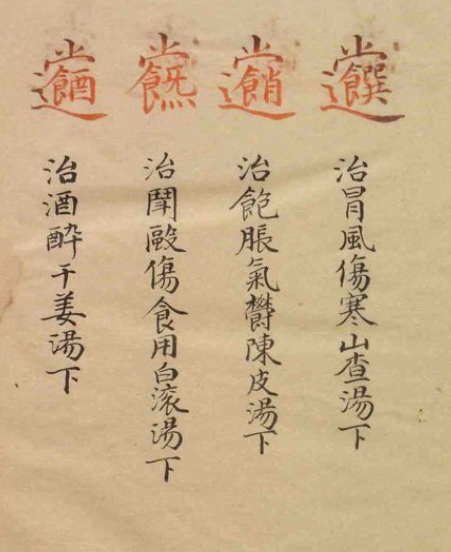 治冒風傷寒山查湯下
治飽脹氣欝陳皮湯下
治鬪毆傷食用白滚湯下
治酒醉干姜湯下